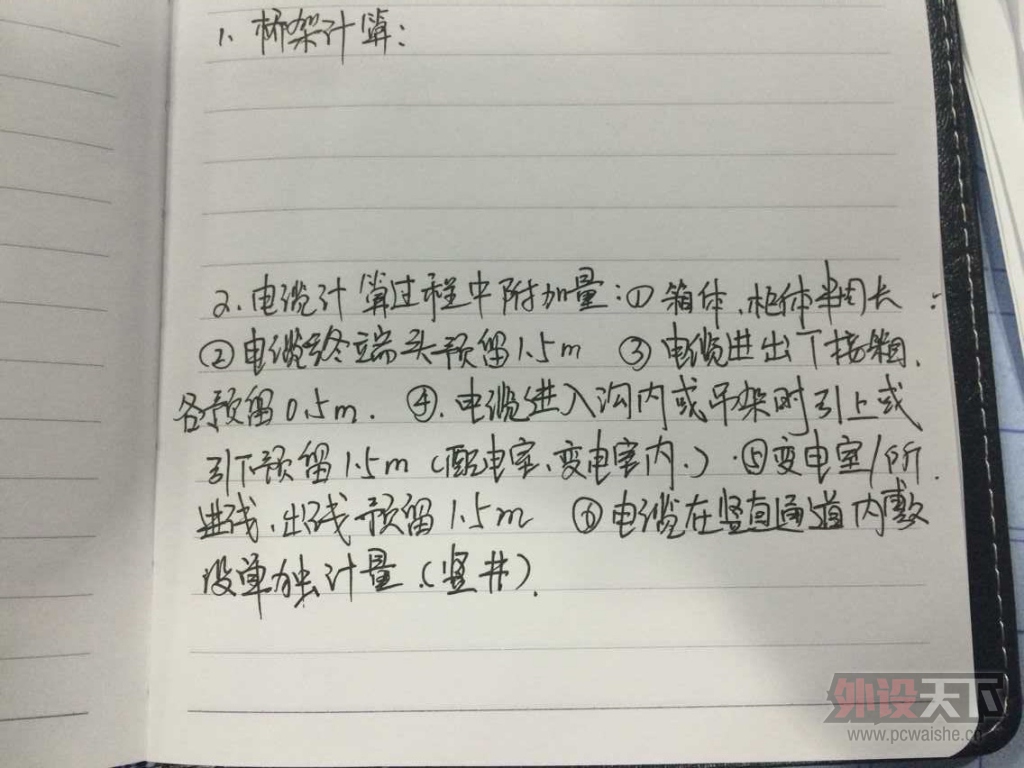 1、桥架计算：
2、电缆计算过程中附加量：①箱体、柜体半周长：
②电缆终端头预留1.5m ③电缆进出T接箱.
各预留0.5m. ④.电缆进入沟内或吊架时引上或
引下预留1.5m（配电室、变电室内.）.⑤变电室/所.
进线、出线预留1.5m ⑥电缆在竖直通道内敷
设单独计量.（竖井）.
外设天下
www.pcwaishe.cn